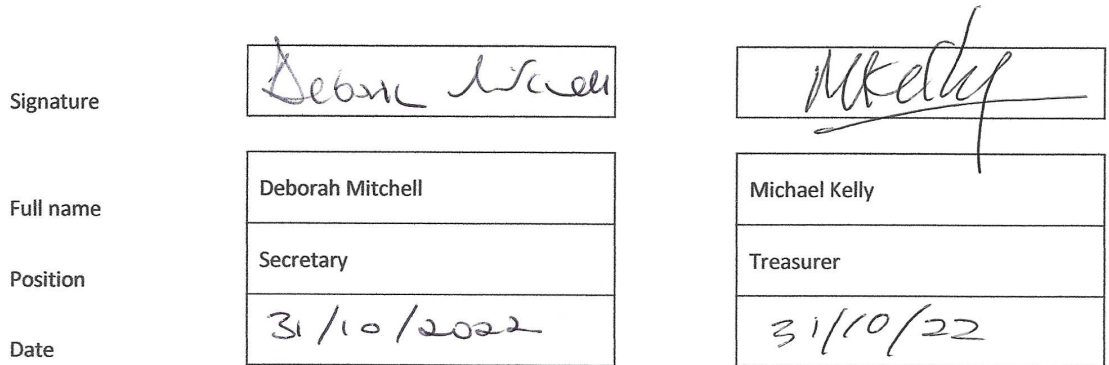 Signature Deborah Mitchell MKelly
Full name Deborah Mitchell Michael Kelly
Position Secretary Treasurer
Date 31/10/2022 31/10/22